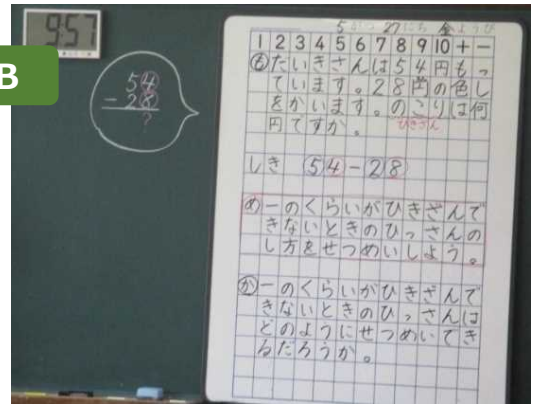 9:57
B
54
- 28
?
5がつ 27にち 金ようび
1 2 3 4 5 6 7 8 9 10 + -
も たいきさんは54円もっ
ています。28円の色し
をかいます。のこりは何
円ですか。
ひきざん
しき 54-28
め 一のくらいがひきざんで
きないときのひっさんの
し方をせつめいしよう。
か 一のくらいがひきざんで
きないときのひっさんは
どのようにせつめいでき
るだろうか。